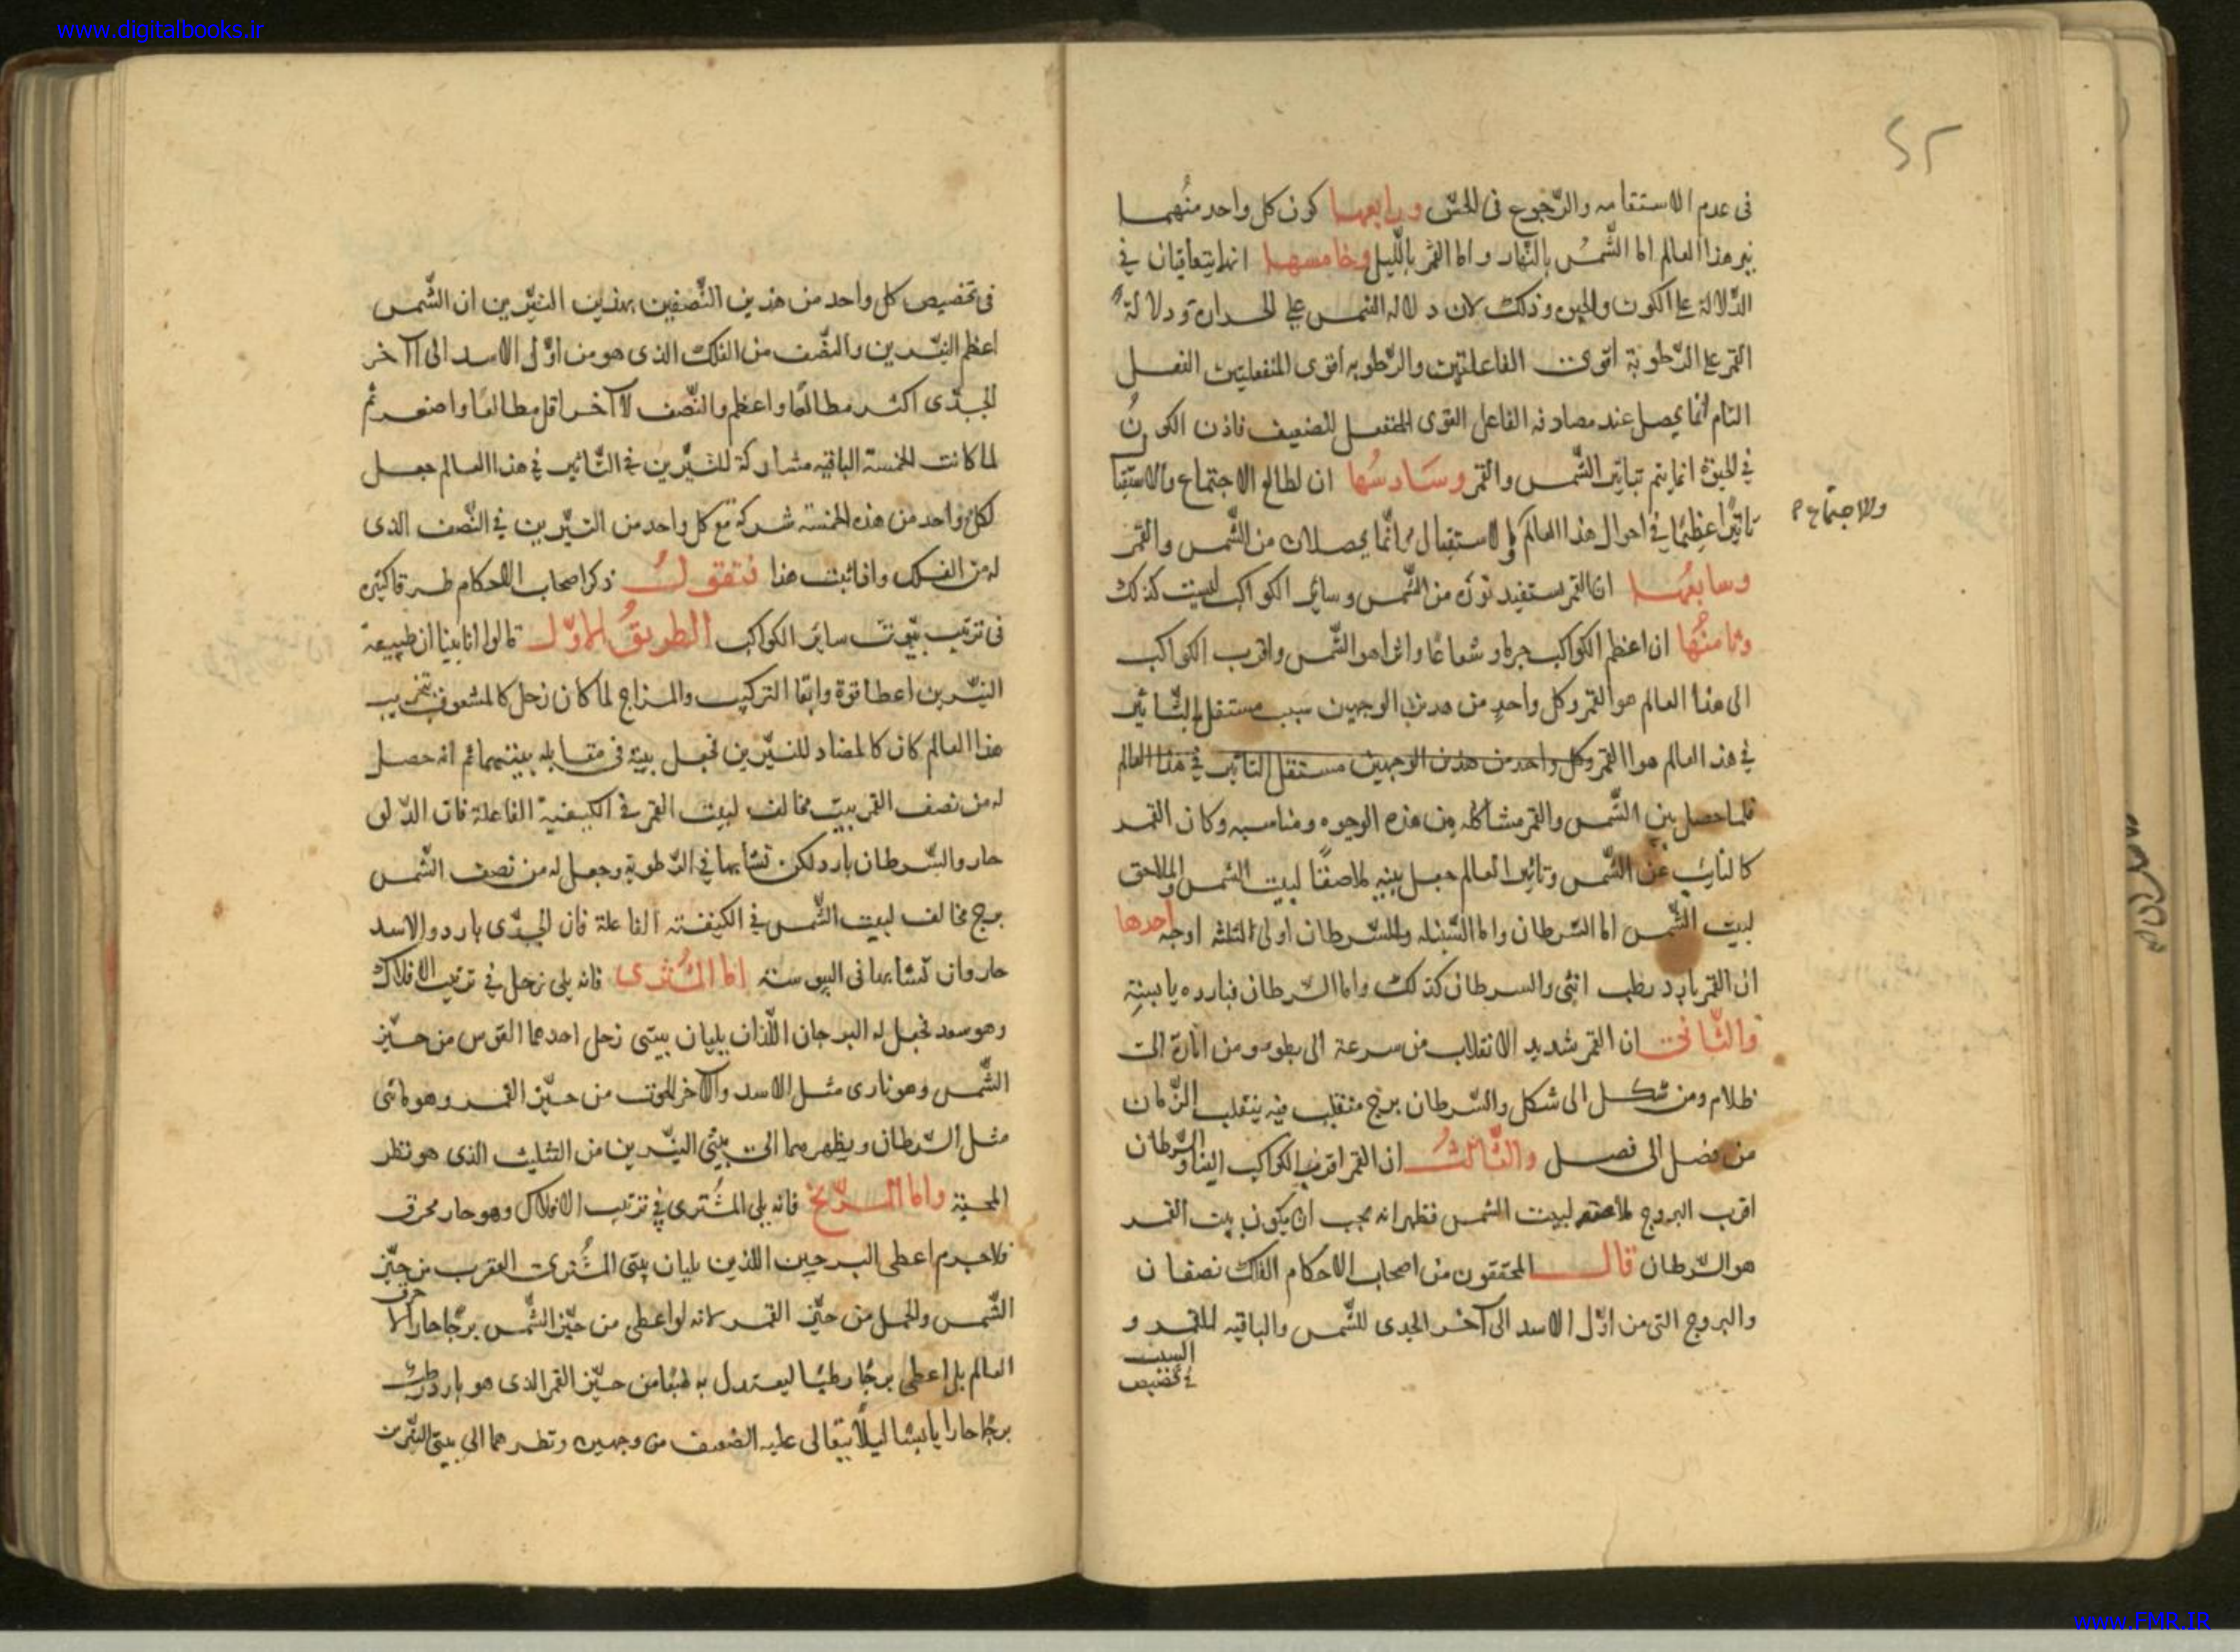 www.digitalbooks.ir
٤٢
فى عدم الاستقامه والرّجوع فى الحسّ ورابعهما كون كل واحد منهما
نير هذا العالم اما الشّمس بالنّهار واما القمر باللّيل وخامسها انهما يتعاقبان فى
الدّلالة على الكون وذلك لان دلاله الشمس على الحرارة ودلالة
القمر على الرّطوبة اقوى الفاعلتين والرّطوبه اقوى المنفعلتين الفعل
التام انما يحصل عند مصادفه الفاعل القوى المنفعل الضعيف فاذن الكون
فى الحيوة انما يتم بتاثير الشّمس والقمر وسَادسُها ان لطالع الاجتماع والاستقبال
والاجتماع
تاثيرًا عظيمًا فى احوال هذا العالم والاستقبال انّما يحصلان من الشّمس والقمر
وسابعُهما ان القمر يستفيد نوره من الشّمس وسائر الكواكب ليست كذلك
وثامنُها ان اعظم الكواكب جرما وشعاعًا واثرا هو الشّمس واقرب الكواكب
الى هذا العالم هو القمر وكل واحدٍ من هذين الوجهين سبب مستقل بالتّاثير
فى هذا العالم هو القمر وكل واحد من هذين الوجهين مستقل التاثير فى هذا العالم
فلما حصل بين الشّمس والقمر مشاكله من هذه الوجوه ومناسبه وكان القمر
كالنايب عن الشّمس وتاثير العالم جعل بيته ملاصقًا لبيت الشمس والملاصق
لبيت الشّمس اما السّرطان واما السّنبله والسّرطان اولى لثلثه اوجه احدها
ان القمر بارد رطب انثى والسرطان كذلك واما السّرطان فبارده يابسةٍ
والثّانى ان القمر شديد الانقلاب من سرعة الى بطوء ومن انارة الى
ظلام ومن شكل الى شكل والسّرطان برج منقلب فيه ينقلب الزّمان
من فصل الى فصل والثّالثُ ان القمر اقرب الكواكب الينا والسّرطان
اقرب البروج لبيت الشمس فظهر انه يجب ان يكون بيت القمر
هو السّرطان قال المحققون من اصحاب الاحكام الفلك نصفان
والبروج التى من اوّل الاسد الى آخر الجدى للشّمس والباقيه للقمر و
السبب
فى تخصيص
فى تخصيص كل واحد من هذين النّصفين بهذين النيّرين ان الشّمس
اعظم النيّرين والنصّف من الفلك الذى هو من اوّل الاسد الى آخر
الجدّى اكثر مطالعًا واعظم والنّصف الآخر اقل مطالعًا واصغر ثم
لما كانت الخمسة الباقيه مشاركة للنيّرين فى التّاثير فى هذا العالم جعل
لكل واحد من هذه الخمسة شركة مع كل واحد من النيّرين فى النّصف الذى
له من الفلك واذا ثبت هذا فنقول ذكر اصحاب الاحكام طرقا كثيره
فى ترتيب بيوت سائر الكواكب الطريقُ الاوّل قالوا انا بينا ان طبيعة
النيّرين اعطا قوة وابقا التركيب والمزاج لما كان زحل كالمشعوف بتخريب
هذا العالم كان كالمضاد للنيّرين فجعل بيته فى مقابله بيتيهما ثم انه حصل
له من نصف القمر بيت مخالف لبيت القمر فى الكيفية الفاعلة فان الدّلو
حار والسّرطان بارد لكن تشابها فى الرّطوبة وجعل له من نصف الشّمس
برج مخالف لبيت الشّمس فى الكيفيه الفاعلة فان الجدّى بارد والاسد
حار وان تشابها فى اليبوسة امّا المشترى فانه يلى زحل فى ترتيب الافلاك
وهو سعد فجعل له البرجان اللّذان يليان بيتى زحل احدهما القوس من حيّز
الشّمس وهو نارى مثل الاسد والآخر الحوت من حيّز القمر وهو مائى
مثل السّرطان وبظهر هما الى بيتى النيّرين من التثليث الذى هو نظر
المحبّة وامّا المرّيخ فانه يلى المشترى فى ترتيب الافلاك وهو حار محرق
فلا جرم اعطى البرجين اللذين يليان بيتى المشترى العقرب من حيّز
الشّمس والحمل من حيّز القمر لانه لو اعطى من حيّز الشّمس برجًا حارا لاحرق
العالم بل اعطى برجًا رطبًا ليعتدل به طبعًا من حيّز القمر الذى هو بارد رطب
برجًا حارا يابسًا ليلًا يتعالى عليه الضعف من وجهين ونظرهما الى بيتى النيّرين
www.FMR.IR